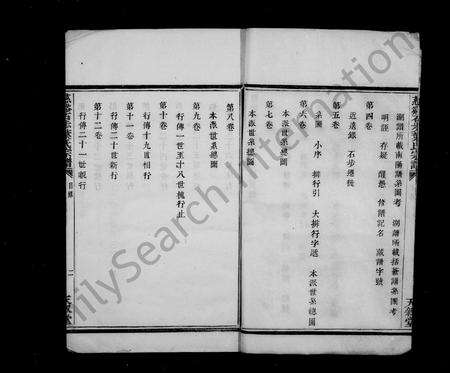 湖譜所載南陽譜系圖考　湖譜所載括蒼譜系圖考
明註　存疑　　修譜記名　藏譜字號
第四卷
近遠錄　石步遷徙
第五卷
系圖　小序　排行引　大排行字遞　本派世系總圖
第六卷
本派世系總圖
第七卷
本派世系總圖
天敘堂
第八卷
本派世系總圖
第九卷
行傳一世至十八世槐行止
第十卷
行傳十九世相行
第十一卷
行傳二十世新行
第十二卷
行傳二十一世親行
目錄
二
FamilySearch International